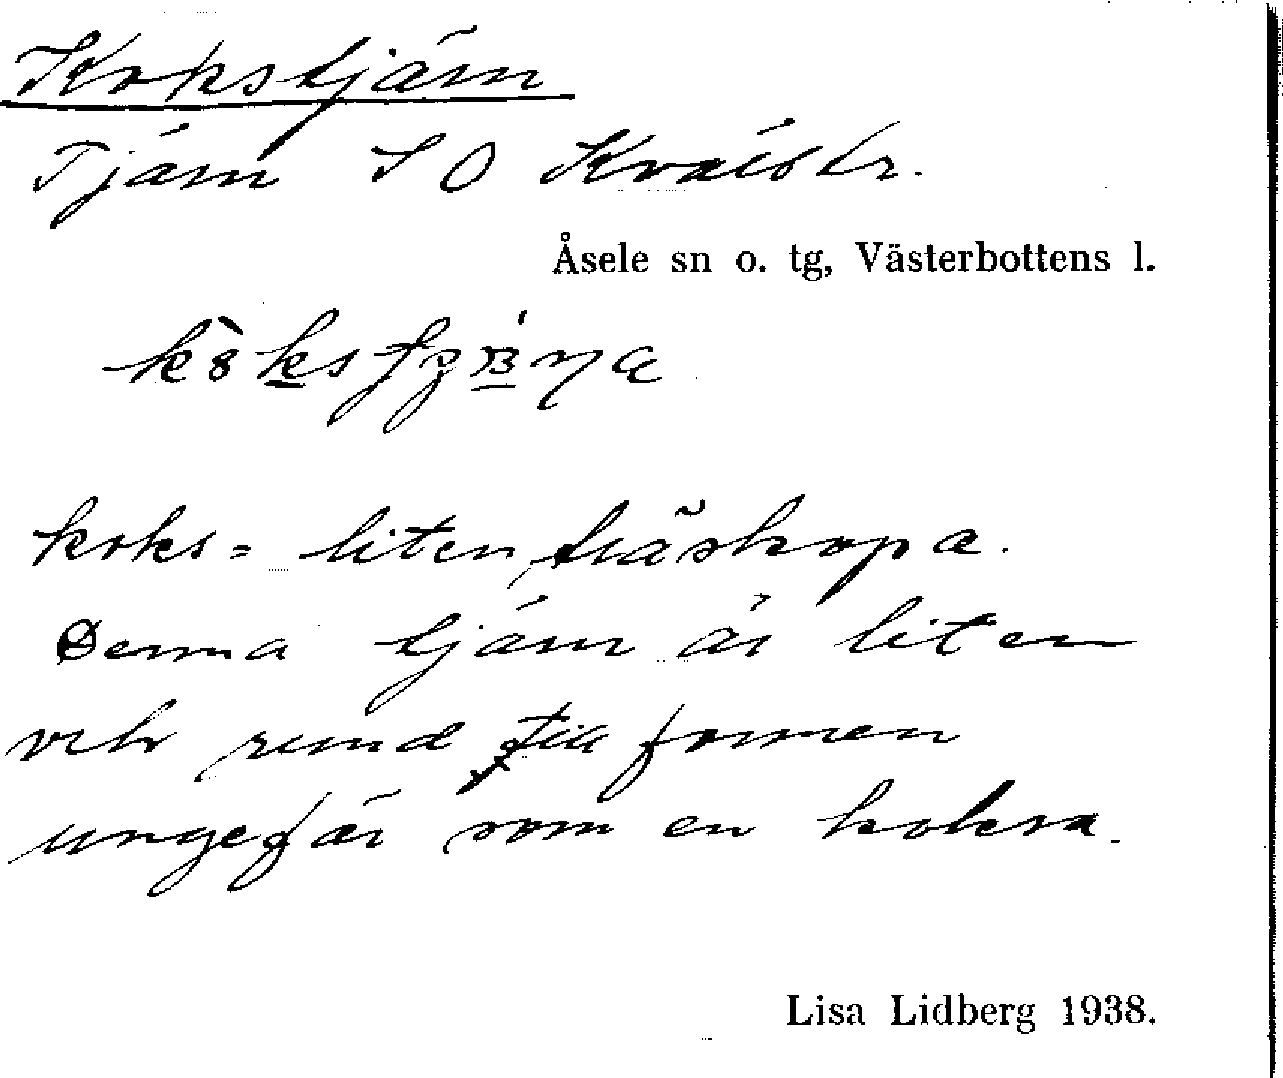 Kokstjärn
Tjärn S O
Åsele sn o. tg, Västerbottens l.
koks = liten träskopa.
Denna tjärn är liten
och rund till formen
ungefär som en koksa.
Lisa Lidberg 1938.